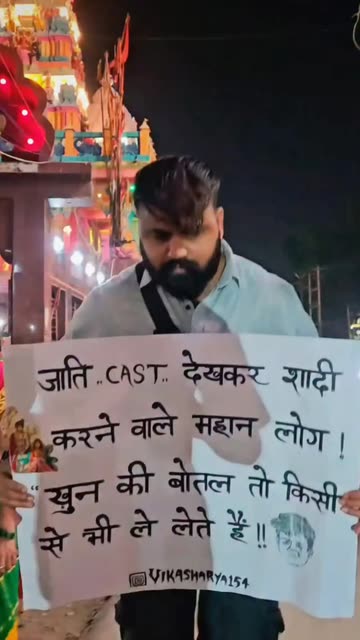 जाति..CAST.. देखकर शादी
करने वाले महान लोग !
"खुन की बोतल तो किसी
से भी ले लेते हैं !!
VIKASHARYA154